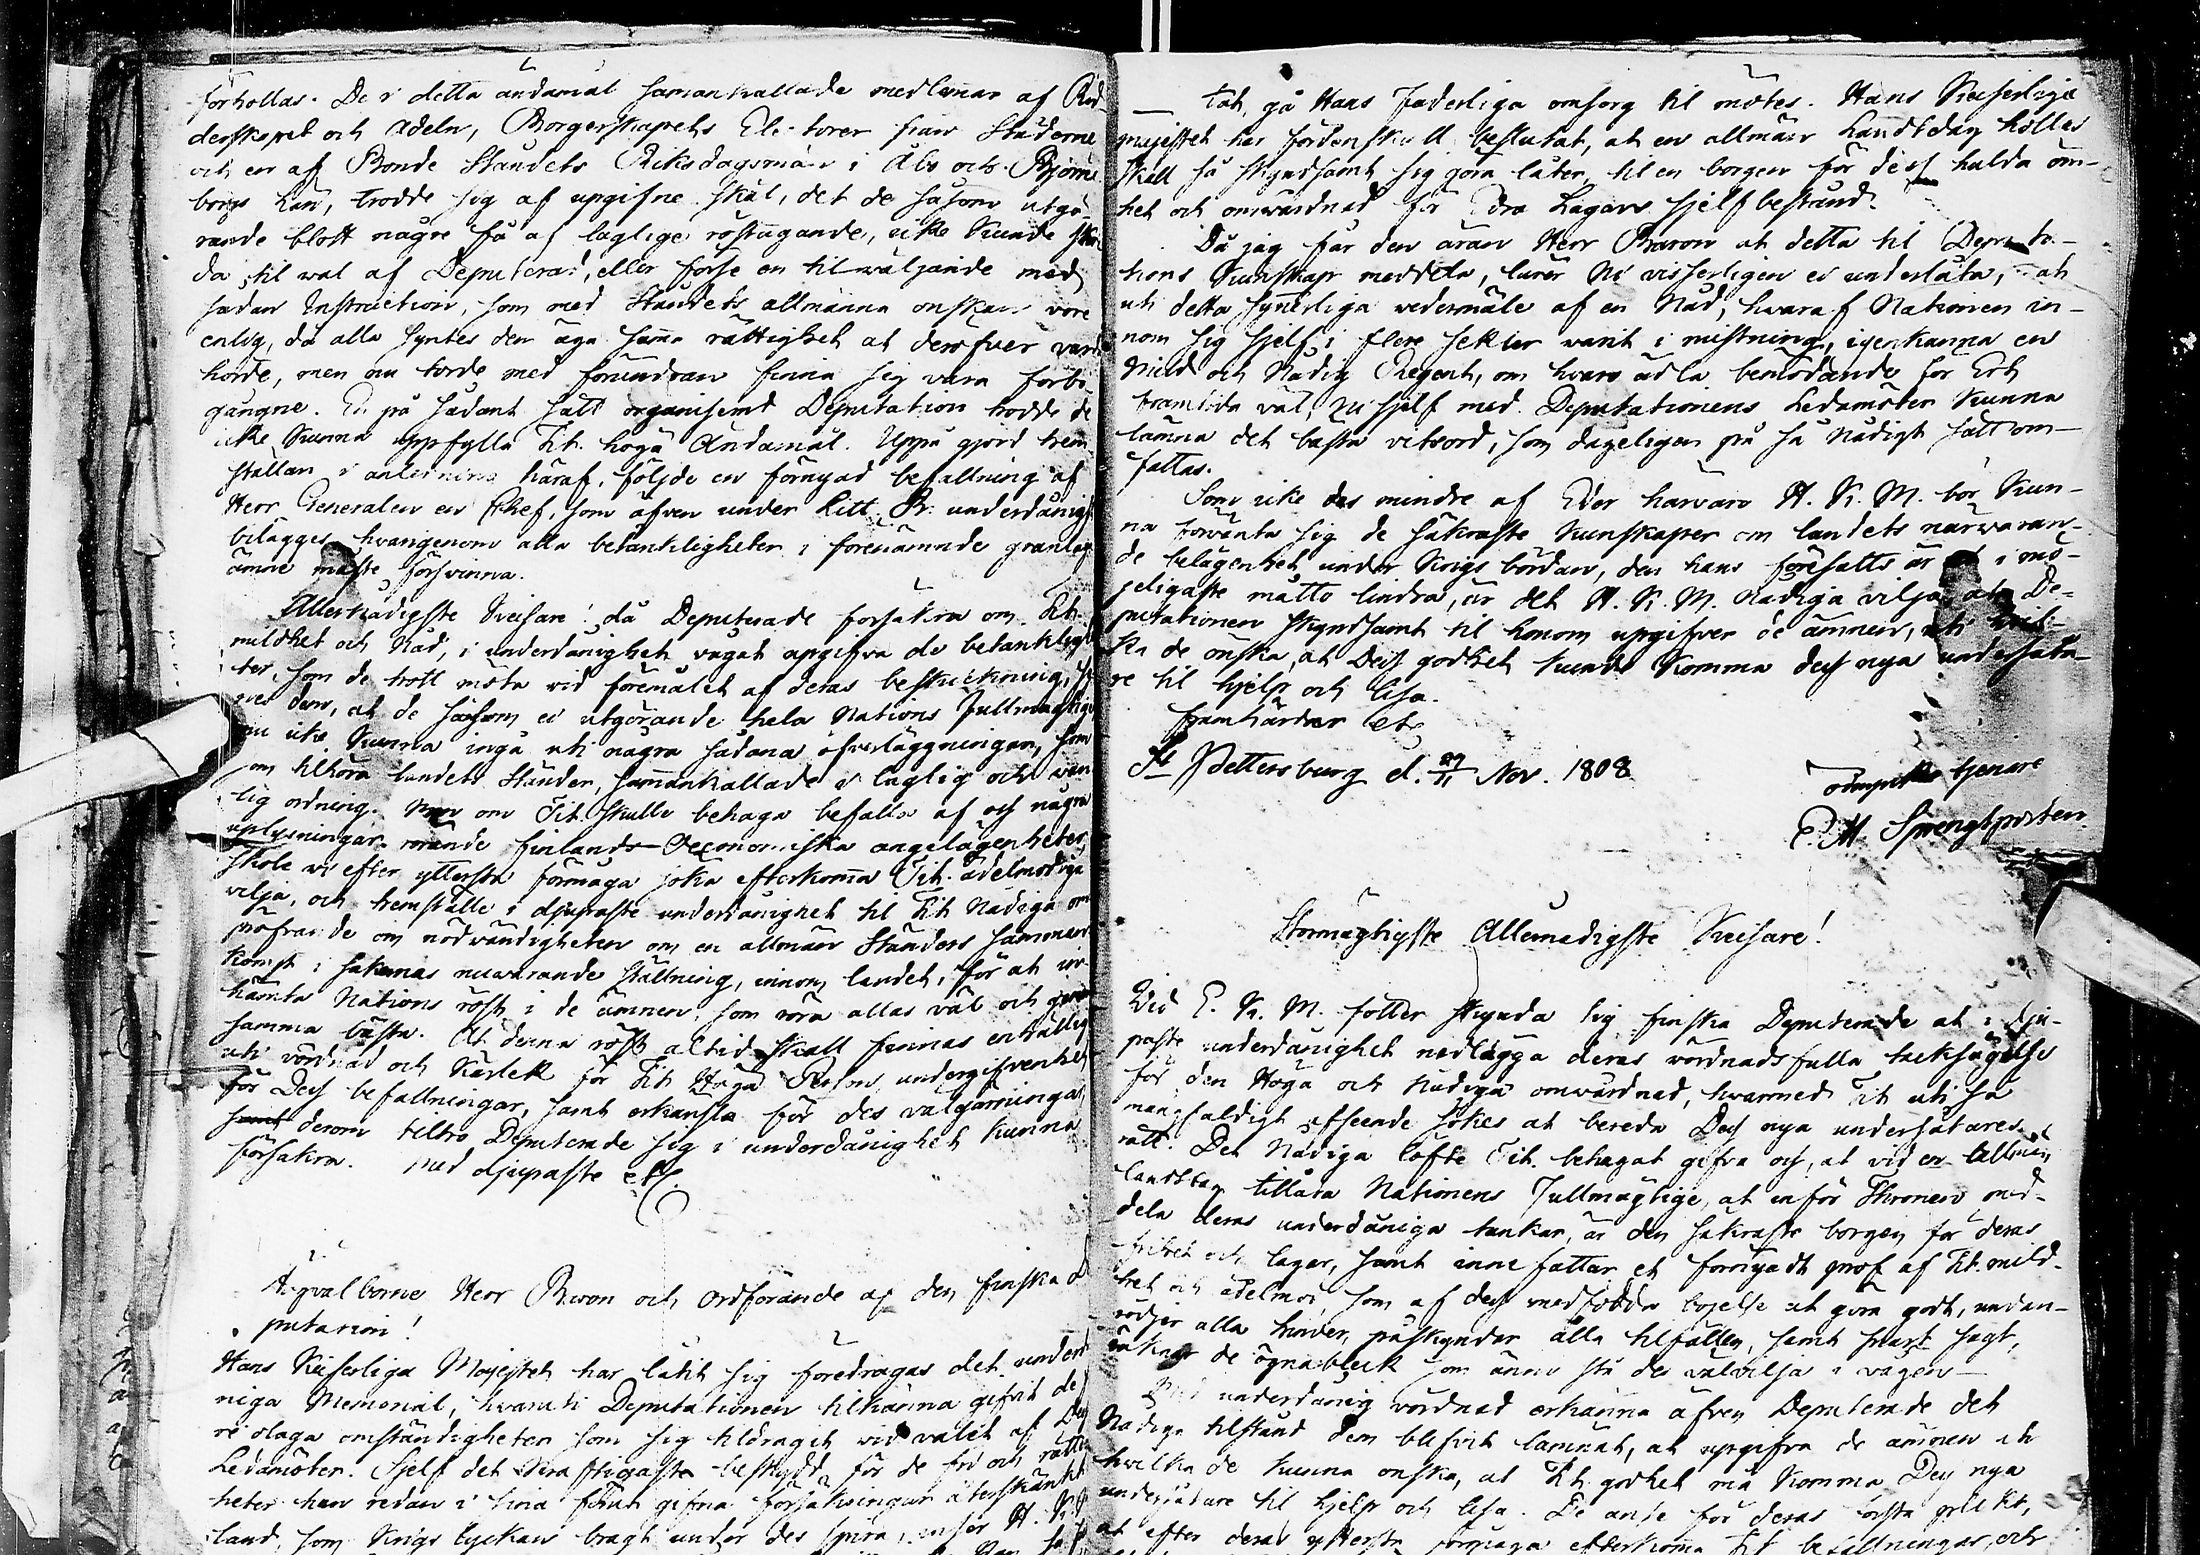 förhollas. De i detta ändamål samankallade medlemar af Rid
derskapet och Adeln, Borgerskapets Electorer från Städerne
och en af Bonde Ståndets Riksdagsmän i Åbo och Björne
borgs Län, trodde sig af upgifne skäl, det de såsom utgö-
rande blott någre få af laglige röstägande, icke kunde skri
da til wal af Deputerad, eller förse en til wäljande med
sådan Instruction, som med Ståndets allmänna önskan vore
enlig, då alla syntes den äga samma rättighet at deröfver vara
hörde, men nu torde med förundran finna sig vara förbi
gångne. En på sådant sätt organiserad Deputation trodde de
icke kunna uppfylla Tit. höga Ändamål. Uppå gjord hem
ställan i anledning häraf, följde en förnyad befallning af
Herr Generalen en Chef, som äfven under Litt. B. underdånigst
bilägges, hvarigenom alla betänkligheter i förenämnde granlaga
ämne måste försvinna.
Allernådigste Kejsare! då Deputerade försäkra om Tit.
mildhet och Nåd, i underdånighet vågat upgifva de betänklighe
ter, som de trott möta vid föremålet af deras beskickning,
den, at de såsom ei utgörande hela Nations Fullmägtige
icke kunna ingå uti några sådana öfverläggningar, som
om tilhöra landets Ständer, sammankallade i laglig och van
lig ordning. Men om Tit. skulle behaga befalla af oss några
uplysningar rörande Finlands Oeconomiska angelägenheter,
skole vi efter yttersta förmåga söka efterkomma Tit. ädelmodiga
vilja, och hemställe i djupaste underdånighet til Tit. Nådiga om
pröfvande om nödvändigheten om en allmän Ständers samman
komst i sakernas nuvarande ställning, innom landet, för at in
hämta Nations röst i de ämnen, som röra allas väl och gemen
samma bästa. At denna röst altid skall finnas enhällig
uti vördnad och Kärlek för Tit. Höga Person, undergifvenhet
för Dess befallningar, samt erkänsla för des välgärningar,
derom tiltro Deputerade sig i underdånighet kunna
försäkra. Med djupaste etc.
Högvälborne Herr Baron och Ordförande af den finska De
putation!
Hans Kejserliga Majestet har låtit sig föredragas det underdå
niga Memorial, hvaruti Deputationen tilkänna gifvit de
olaga omständigheter som sig tildragit wid valet af Dess
Ledamöter. Sjelf det kraftigaste beskydd för de fri och rättig
heter han redan i sina förut gifna försäkringar återskänkt
land, som Krigs lyckan bragt under des spira, anser H. K. M.
tat, gå Hans Faderliga omsorg til mötes. Hans Kejserliga
majestet har fördenskull beslutat, at en allmän Landtdag hålles
skall så skyndsamt sig göra låter, til en borgen för dess hulda öm-
het och omwårdnad för Edra Lagars sjelfbestånd.
Då jag får den äran Herr Baron at detta til Deputa-
tions Kunskap meddela, lärer Ni visserligen ei underlåta, at
uti detta synerliga vedermäle af en Nåd, hvaraf Nationen in-
nom sig sjelf i flere sekler varit i mistning, igenkänna en
Mild och Nådig Regent, om hvars ädla bemödande för Ert
framtida väl, Ni sjelf med Deputationens Ledamöter kunna
lämna det bästa vitsord, som dageligen på så nådigt sätt om-
fattas.
Som icke des mindre af Eder härvaro H. K. M. bör kun-
na förvänta sig de säkraste kunskaper om landets närwaran-
de belägenhet under Krigs bördan, den hans föresatts är i mö-
jeligaste måtto lindra, är det H. K. M. Nådiga vilja, at De-
putationen skyndsamt til honom upgifver de ämnen, uti hvil-
ka de önska, at Dess godhet kunde komma dess nya undersåta-
re til hjelp och lisa.
framhärdar etc
St Pettersburg d. 29/11 Nov. 1808
ödmjuke tjenare
G. M. Sprengtporten
Stormägtigste Allernådigste Kejsare!
Vid E. K. M. fötter skynda sig finska Deputerade at i dju-
paste underdånighet nedlägga deras vördnadsfulla tacksägelse
för den Höga och Nådiga omvårdnad, hvarmed Tit. uti så
mångfaldigt afseende sökes at bereda Dess nya undersåtares
rätt. Det Nådiga löfte Tit. behagat gifva oss, at vid en allmän
landtdag tillåta Nationens Fullmägtige, at inför Thronen med-
dela deras underdåniga tankar, är den säkraste borgen för deras
frihet och lagar, samt innefattar et förnyadt prof af Tit. mild-
het och ädelmod, som af dess medfödda böjelse at göra godt, undan-
rödjer alla hinder, påskyndar alla tilfällen, samt snart sagt,
räknar de ögnableck som ännu stå des välvilja i vägen—
Med underdånig vördnad erkänna äfven Deputerade det
Nådiga tilstånd dem blifvit lämnat, at upgifva de ämnen uti
hvilka de kunna önska, at Tit. godhet må komma Dess nya
undersåtare til hjelp och lisa. De anse för deras första plikt,
at efter deras yttersta förmåga efterkomma Tit. befallningar, och